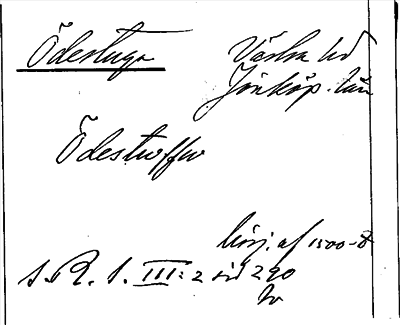 Ödestuga
Västra hd
Jönköp. län
Ödestwffw
börj. af 1500-t
s. R. S. III: 2 sid 290